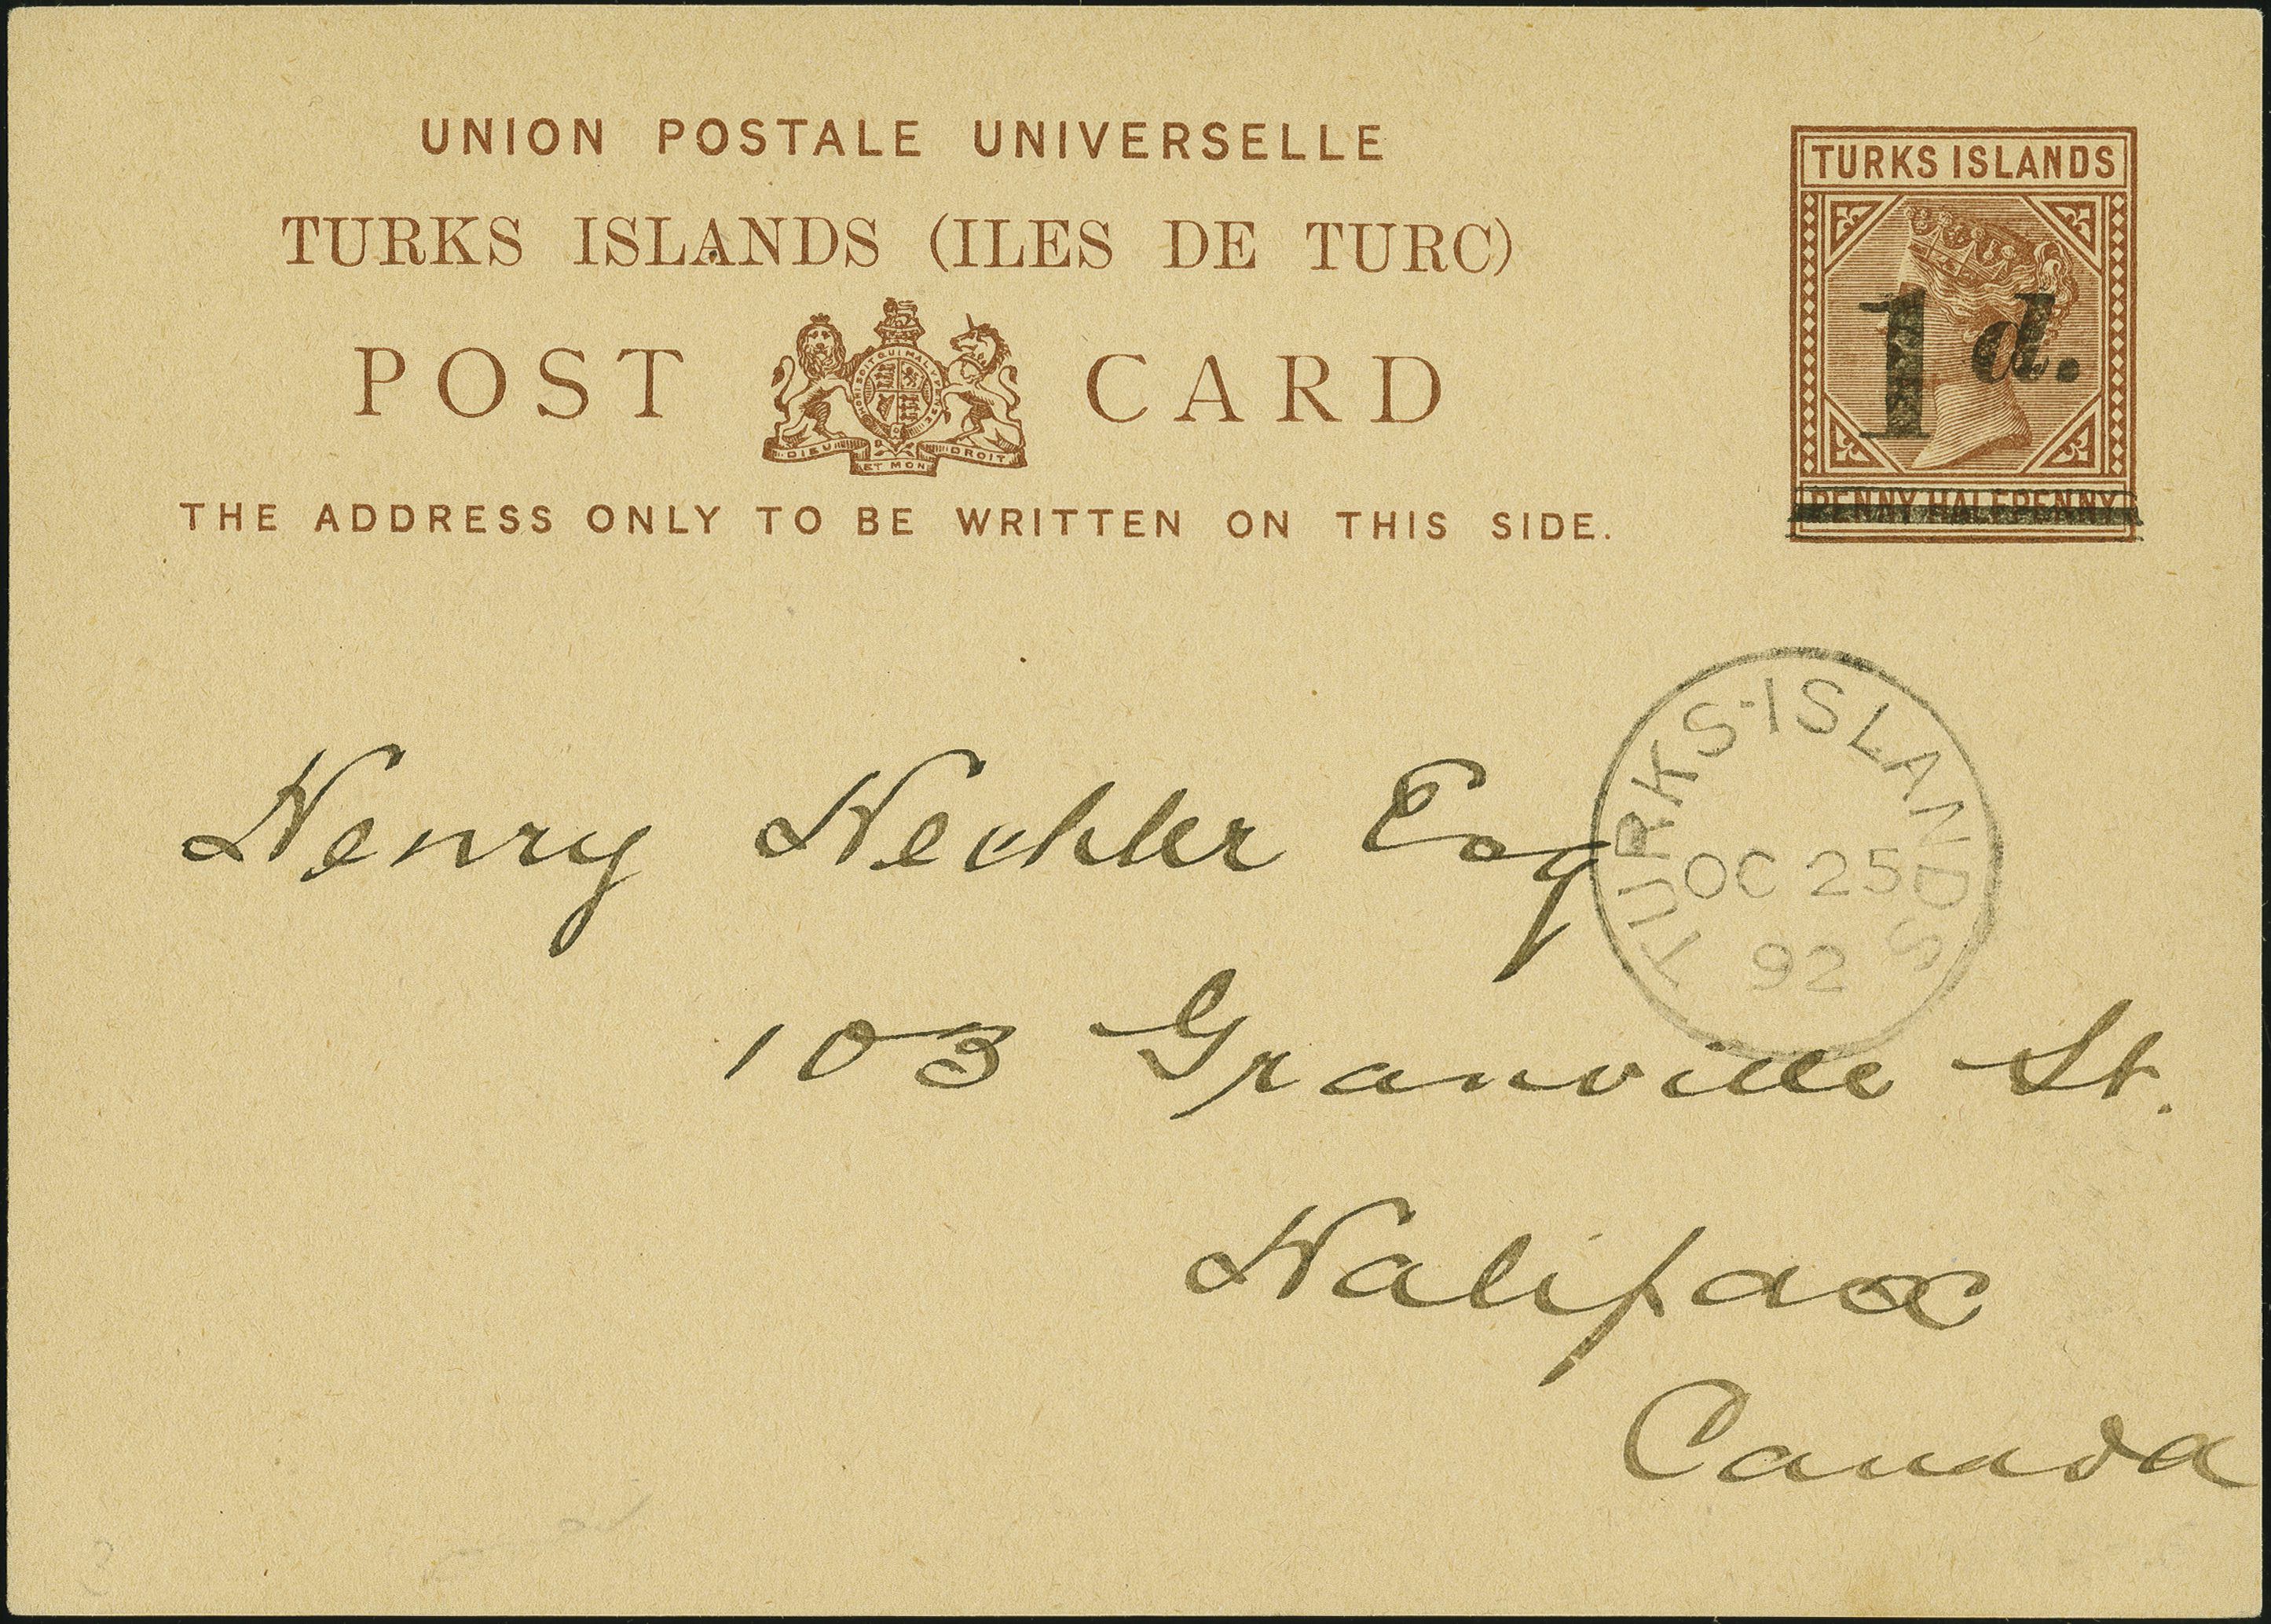 UNION POSTALE UNIVERSELLE
TURKS ISLANDS (ILES DE TURC)
POST CARD
HONI SOIT QUI MAL Y PENSE
DIEU ET MON DROIT
THE ADDRESS ONLY TO BE WRITTEN ON THIS SIDE.
TURKS ISLANDS
1d.
PENNY HALFPENNY
TURKS-ISLANDS
OC 25
92
Henry Hechler Esq
103 Granville St.
Halifax
Canada